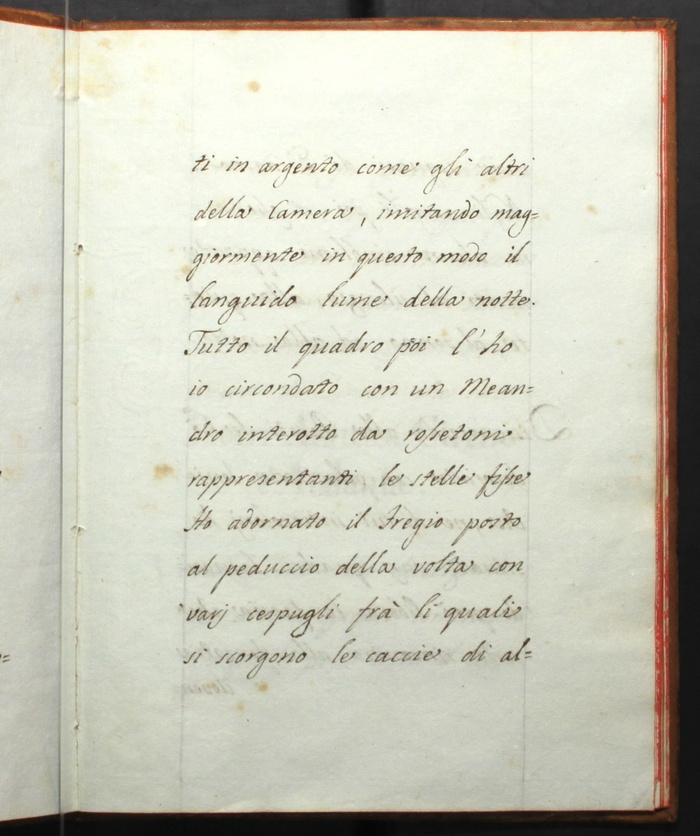 ti in argento come gli altri
della Camera, imitando mag=
giormente in questo modo il
languido lume della notte.
Tutto il quadro poi l'ho
io circondato con un Mean=
dro interotto da rossetoni
rappresentanti le stelle fisse
Ho adornato il Fregio posto
al peduccio della volta con
varj cespugli frà li quali
si scorgono le caccie di al=